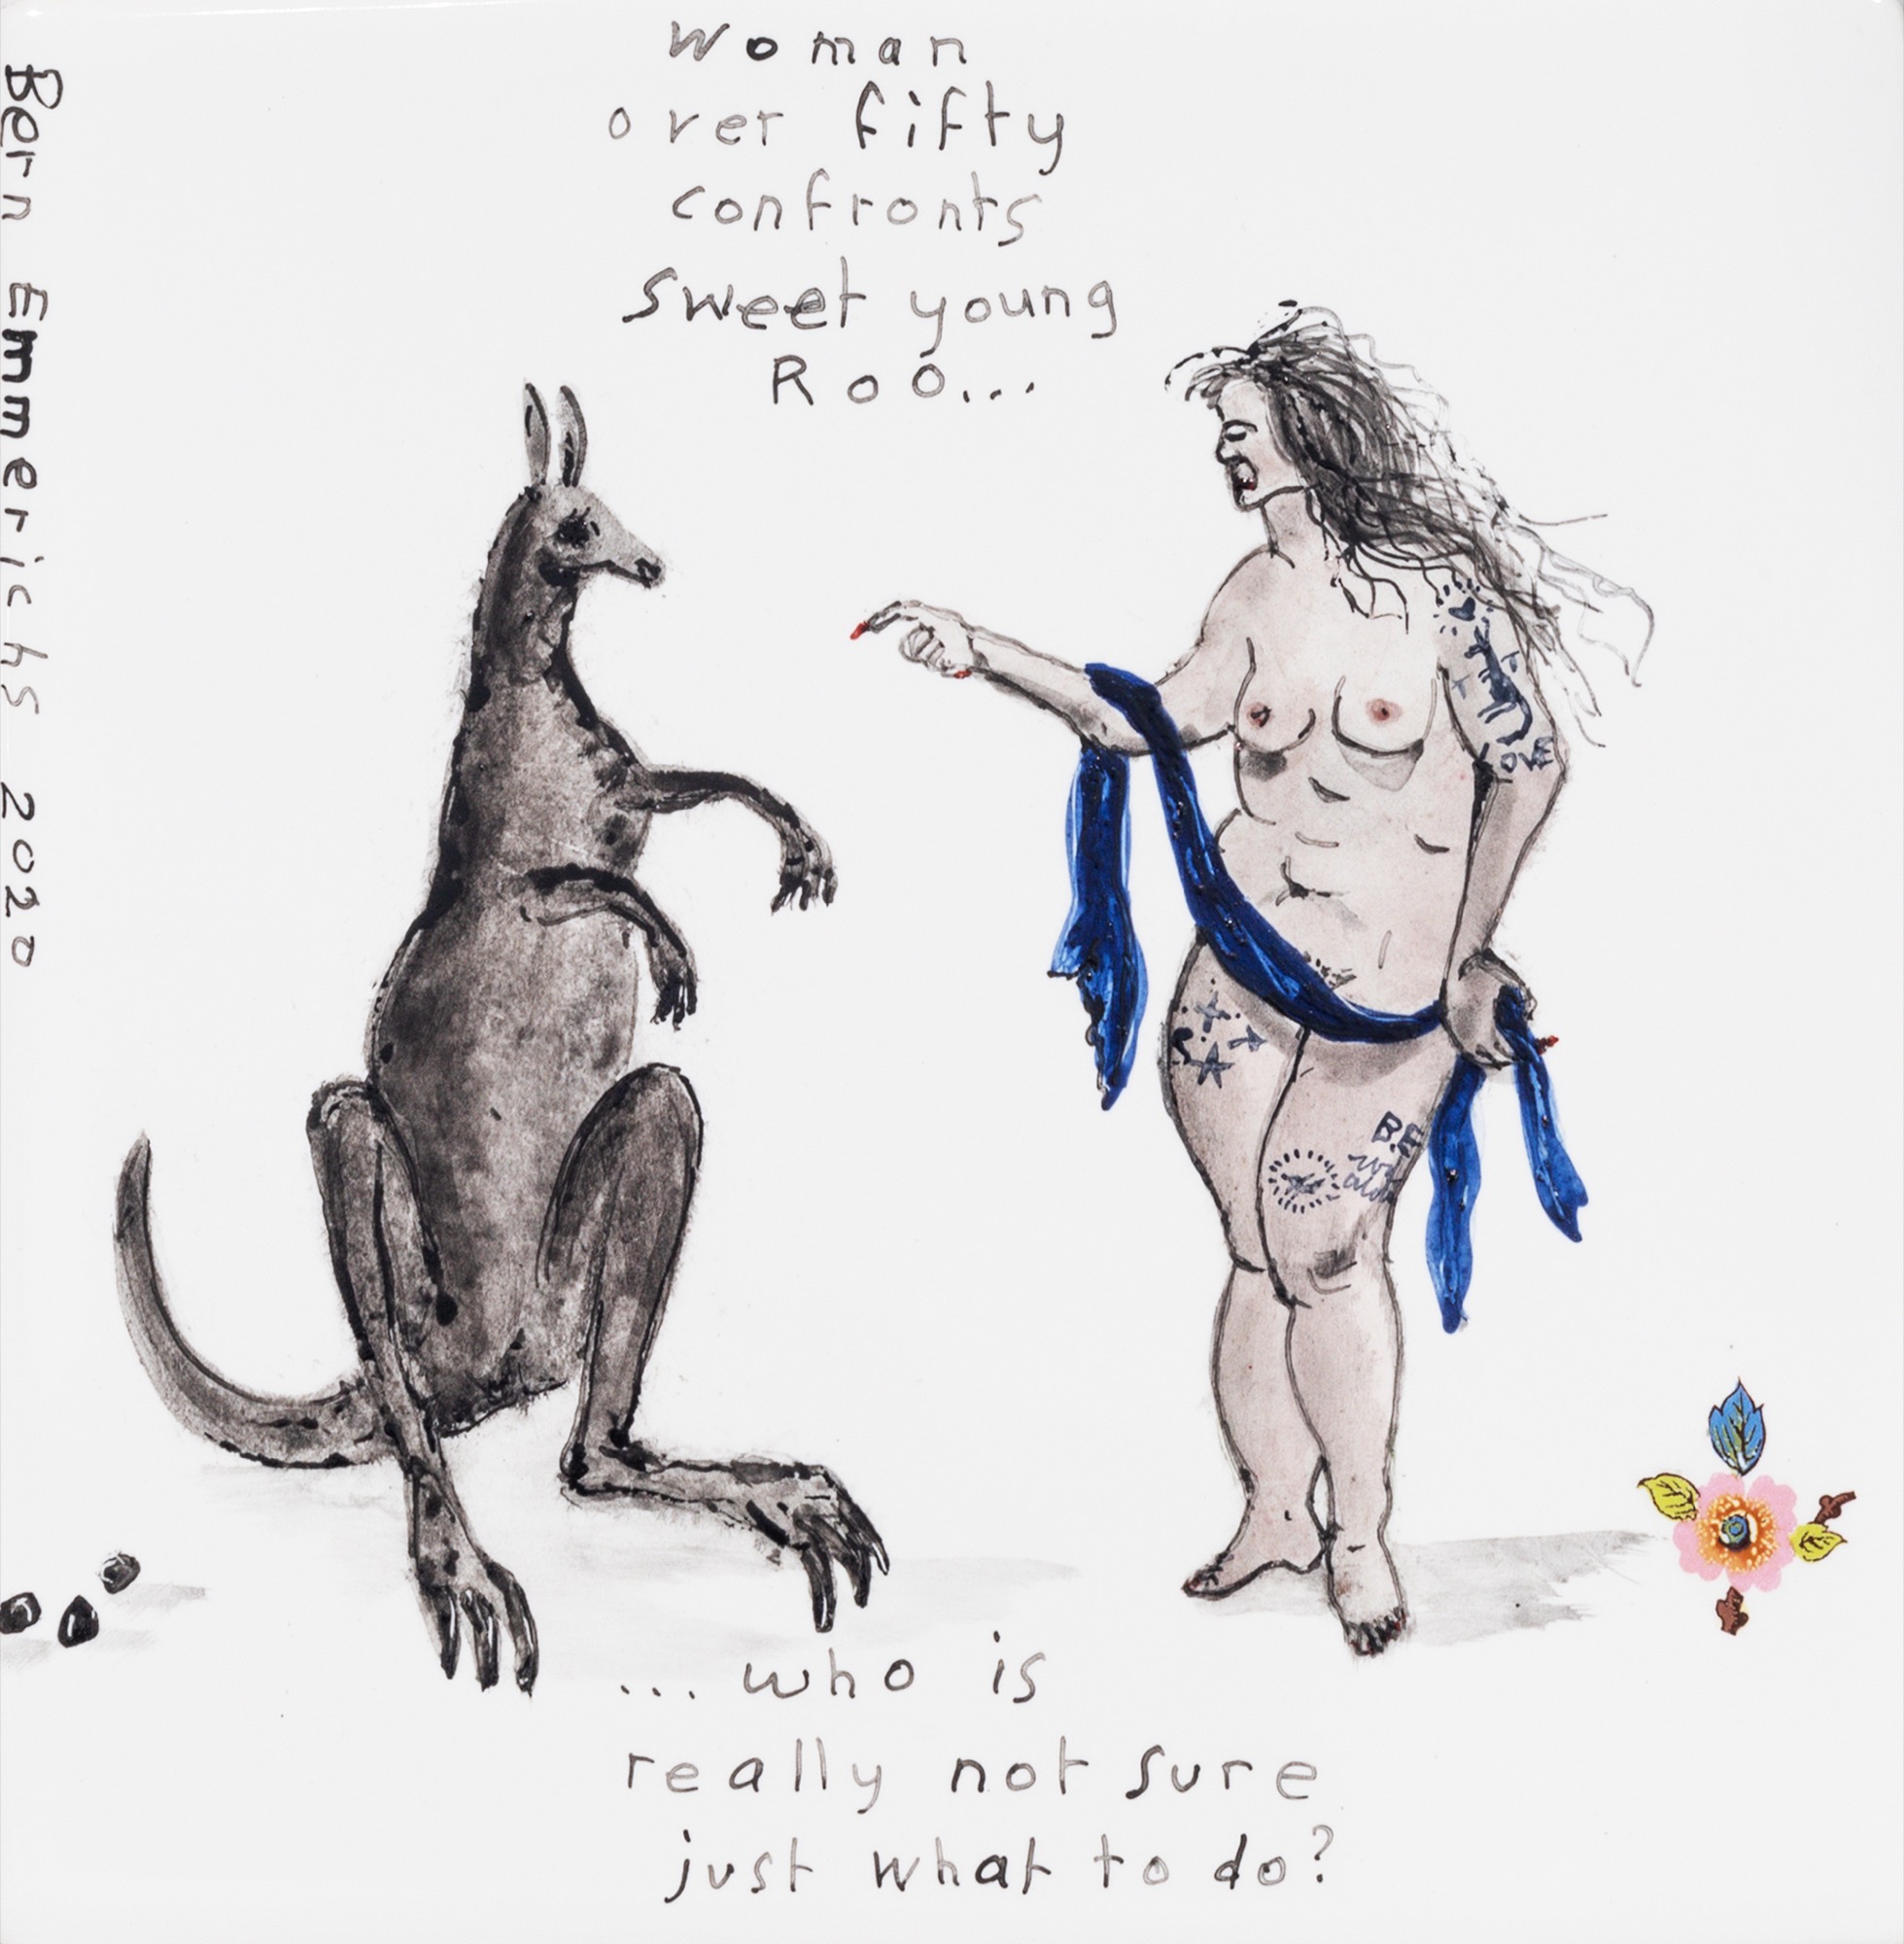 Woman
over fifty
confronts
Sweet young
Roo...
Bern Emmerichs 2020
OVE
B.E
...who is
really not sure
just what to do?